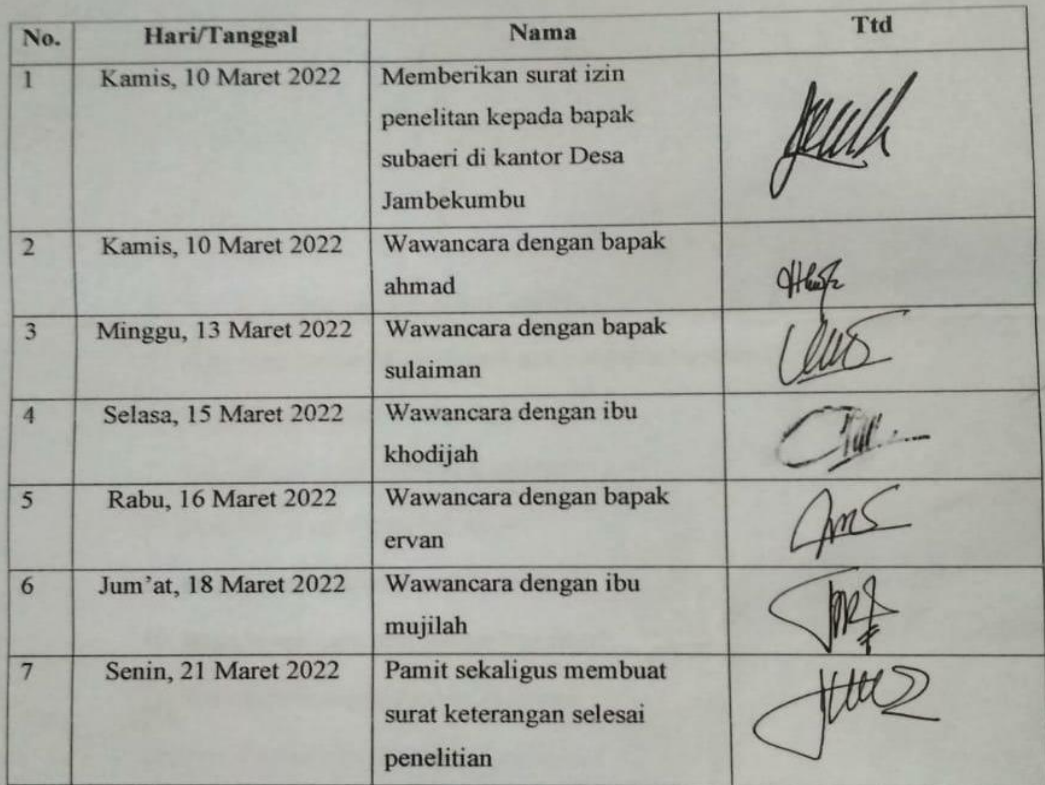 No. Hari/Tanggal Nama Ttd
1 Kamis, 10 Maret 2022 Memberikan surat izin
penelitan kepada bapak
subaeri di kantor Desa
Jambekumbu
2 Kamis, 10 Maret 2022 Wawancara dengan bapak
ahmad
3 Minggu, 13 Maret 2022 Wawancara dengan bapak
sulaiman
4 Selasa, 15 Maret 2022 Wawancara dengan ibu
khodijah
5 Rabu, 16 Maret 2022 Wawancara dengan bapak
ervan
6 Jum’at, 18 Maret 2022 Wawancara dengan ibu
mujilah
7 Senin, 21 Maret 2022 Pamit sekaligus membuat
surat keterangan selesai
penelitian